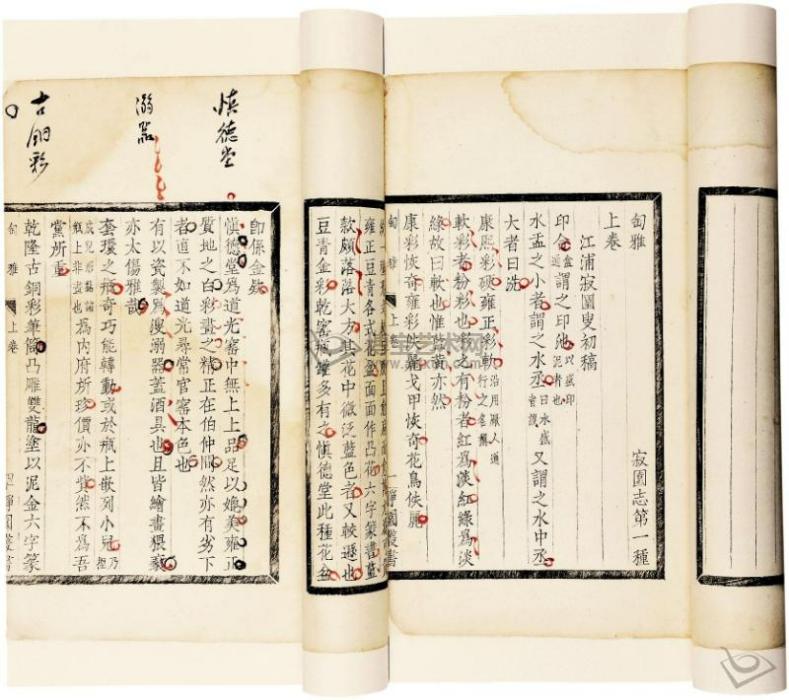 匋雅
上卷
寂園志第一種
江浦寂園叟初稿
印合盒通謂之印池以盛印泥者也
水盂之小者謂之水丞曰水盛又謂之水中丞
大者曰洗
康熙彩硬雍正彩軟沿用厰人通行之名稱
軟彩者粉彩也彩之有粉者紅為淡紅綠為淡
綠故曰軟也惟藍黃亦然
康彩恢奇雍彩佚麗戈甲恢奇花鳥佚麗
匋雅 上卷 一 靜園叢書
雍正豆青各式花盆面面作凸花六字篆書藍
款頗落落大方其花中微泛藍色者又較遜也
豆青金彩乾窑城鐘多有之慎德堂此種花盆
慎德堂
溺器
古銅彩
即係金款
慎德堂為道光窑中無上上品足以媲美雍正
質地之白彩畫之精正在伯仲間然亦有劣下
者道不如道光尋常官窑本色也
有以瓷製為溲溺器蓋酒具也且皆繪畫猥褻
亦太傷雅哉
套環之瓶奇巧能轉動或於瓶上嵌列小冠乃
瓶上非蓋也為內府所珍價亦不貲然不為吾
黨所重
乾隆古銅彩筆筒凸雕雙龍塗以泥金六字篆
匋雅 上卷 靜園叢書